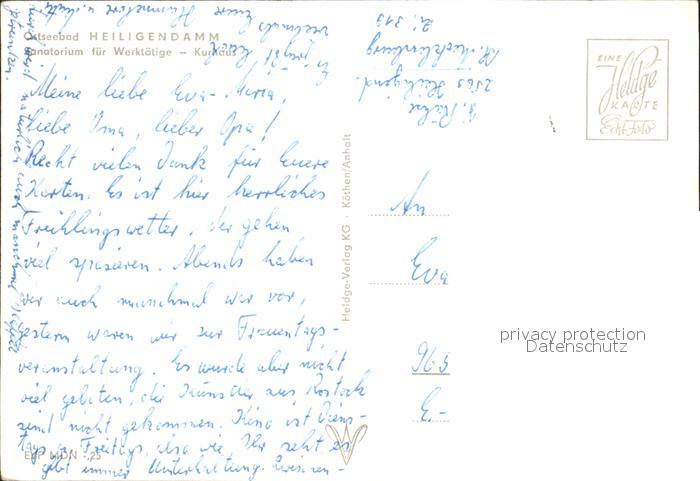 Ostseebad HEILIGENDAMM
Sanatorium für Werktätige – Kurhaus
Meine liebe Eva-Maria,
liebe Oma, lieber Opa!
Recht vielen Dank für Euere
Karten. Es ist hier herrliches
Frühlingswetter. Wir gehen
viel spazieren. Abends haben
wir auch manchmal was vor,
gestern waren wir zur Frauentags-
veranstaltung. Es wurde aber nicht
viel geboten, die Künstler aus Rostock
sind nicht gekommen. Kino ist Diens-
tags u. Freitags, also wie Ihr seht es
gibt immer Unterhaltung. Zwischen-
durch wird natürlich auch manchmal
Es grüßt Euch
EVP MDN -,25
Heldge-Verlag KG · Köthen/Anhalt
2565 Heiligend.
Zi. 313
EINE
Heldge
KARTE
Echt-Foto
An
Eva
965
privacy protection
Datenschutz